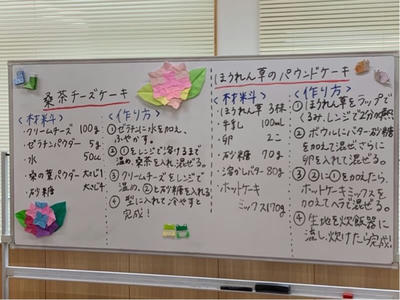 桑茶チーズケーキ
<材料>
・クリームチーズ 100g
・ゼラチンパウダー 5g
・水 50ml
・桑の葉パウダー 大さじ1
・砂糖 大さじ4
<作り方>
①ゼラチンに水を加え、
ふやかす。
②①をレンジで溶けるまで
温め、桑茶を入れ混ぜる。
③クリームチーズをレンジで
温め、②と砂糖を入れる
④型に入れて冷やすと
完成!
ほうれん草のパウンドケーキ
<材料>
・ほうれん草 3株
・牛乳 100ml
・卵 2コ
・砂糖 70g
・溶かしバター 80g
・ホットケーキ
ミックス170g
<作り方>
①ほうれん草をラップで
くるみ、レンジで2分加熱
②ボウルにバター、砂糖
を加えて混ぜ、さらに
卵を入れて混ぜる。
③②に①を加えたら、
ホットケーキミックスを
加えてヘラで混ぜる。
④生地を炊飯器に
流し、炊けたら完成!